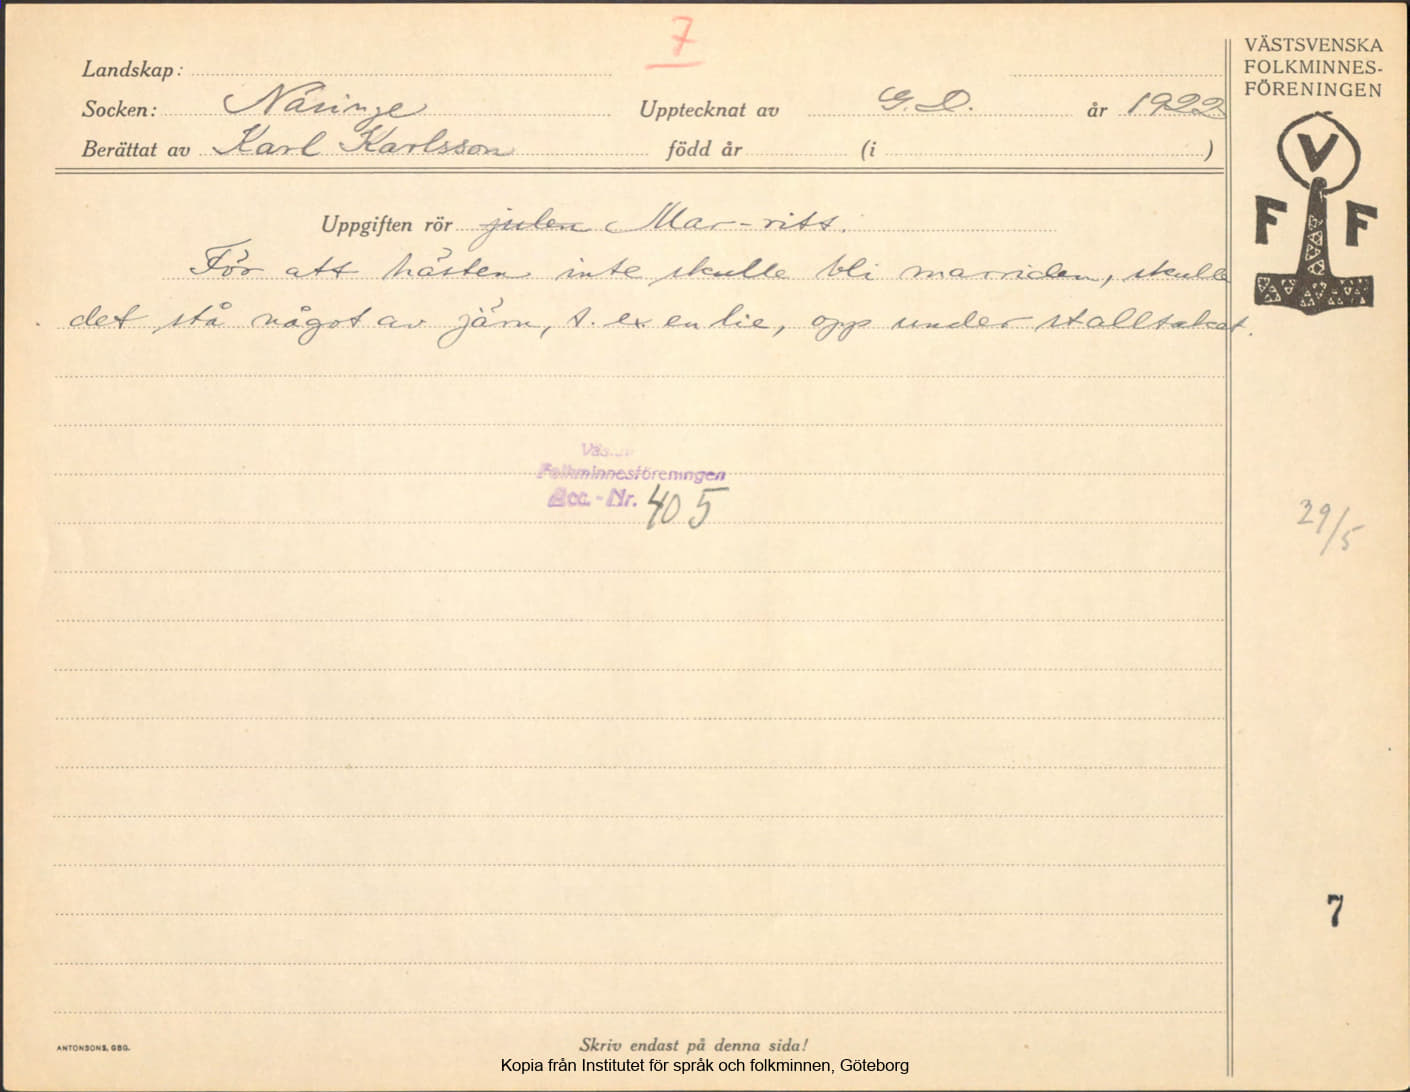 7
Landskap:
Socken: Näsinge Upptecknat av G. D. år 1922
Berättat av Karl Karlsson född år (i )
VÄSTSVENSKA
FOLKMINNES-
FÖRENINGEN
V
F F
Uppgiften rör julen Mar-ritt.
För att hästen inte skulle bli marriden, skulle
det stå något av järn, t. ex en lie, opp under stalltaket.
Folkminnesföreningen
Acc.-Nr. 405
29/5
7
ANTONSONS, GBG.
Skriv endast på denna sida!
Kopia från Institutet för språk och folkminnen, Göteborg